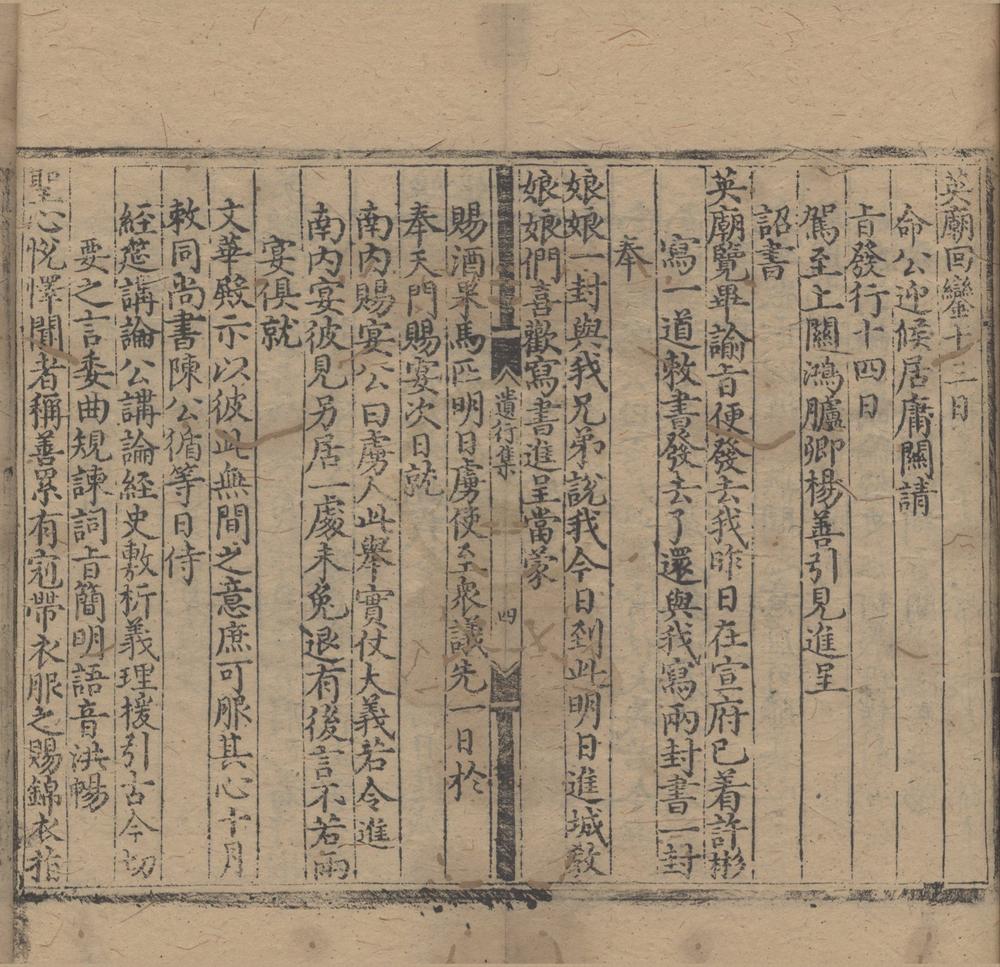 英廟回鑾十二日
命公迎候居庸關請
旨發行十四日
駕至上關鴻臚卿楊善引見進呈
詔書
英廟覽畢諭旨便發去我昨日在宣府已着許彬
寫一道敕書發去了還與我寫兩封書一封
奉
娘娘一封與我兄弟說我今日到此明日進城教
娘娘們喜歡寫書進呈當蒙
遺行集
四
賜酒果馬匹明日虜使至衆議先一日於
奉天門賜宴次日就
南內賜宴公曰虜人此舉實仗大義若今進
南內宴彼見另居一處未免退有後言不若兩
宴俱就
文華殿示以彼此無間之意庶可服其心十月
敕同尚書陳公循等日侍
經筵講論公講論經史敷析義理援引古今切
要之言委曲規諫詞旨簡明語音洪暢
聖心悅懌聞者稱善累有冠帶衣服之賜錦衣指